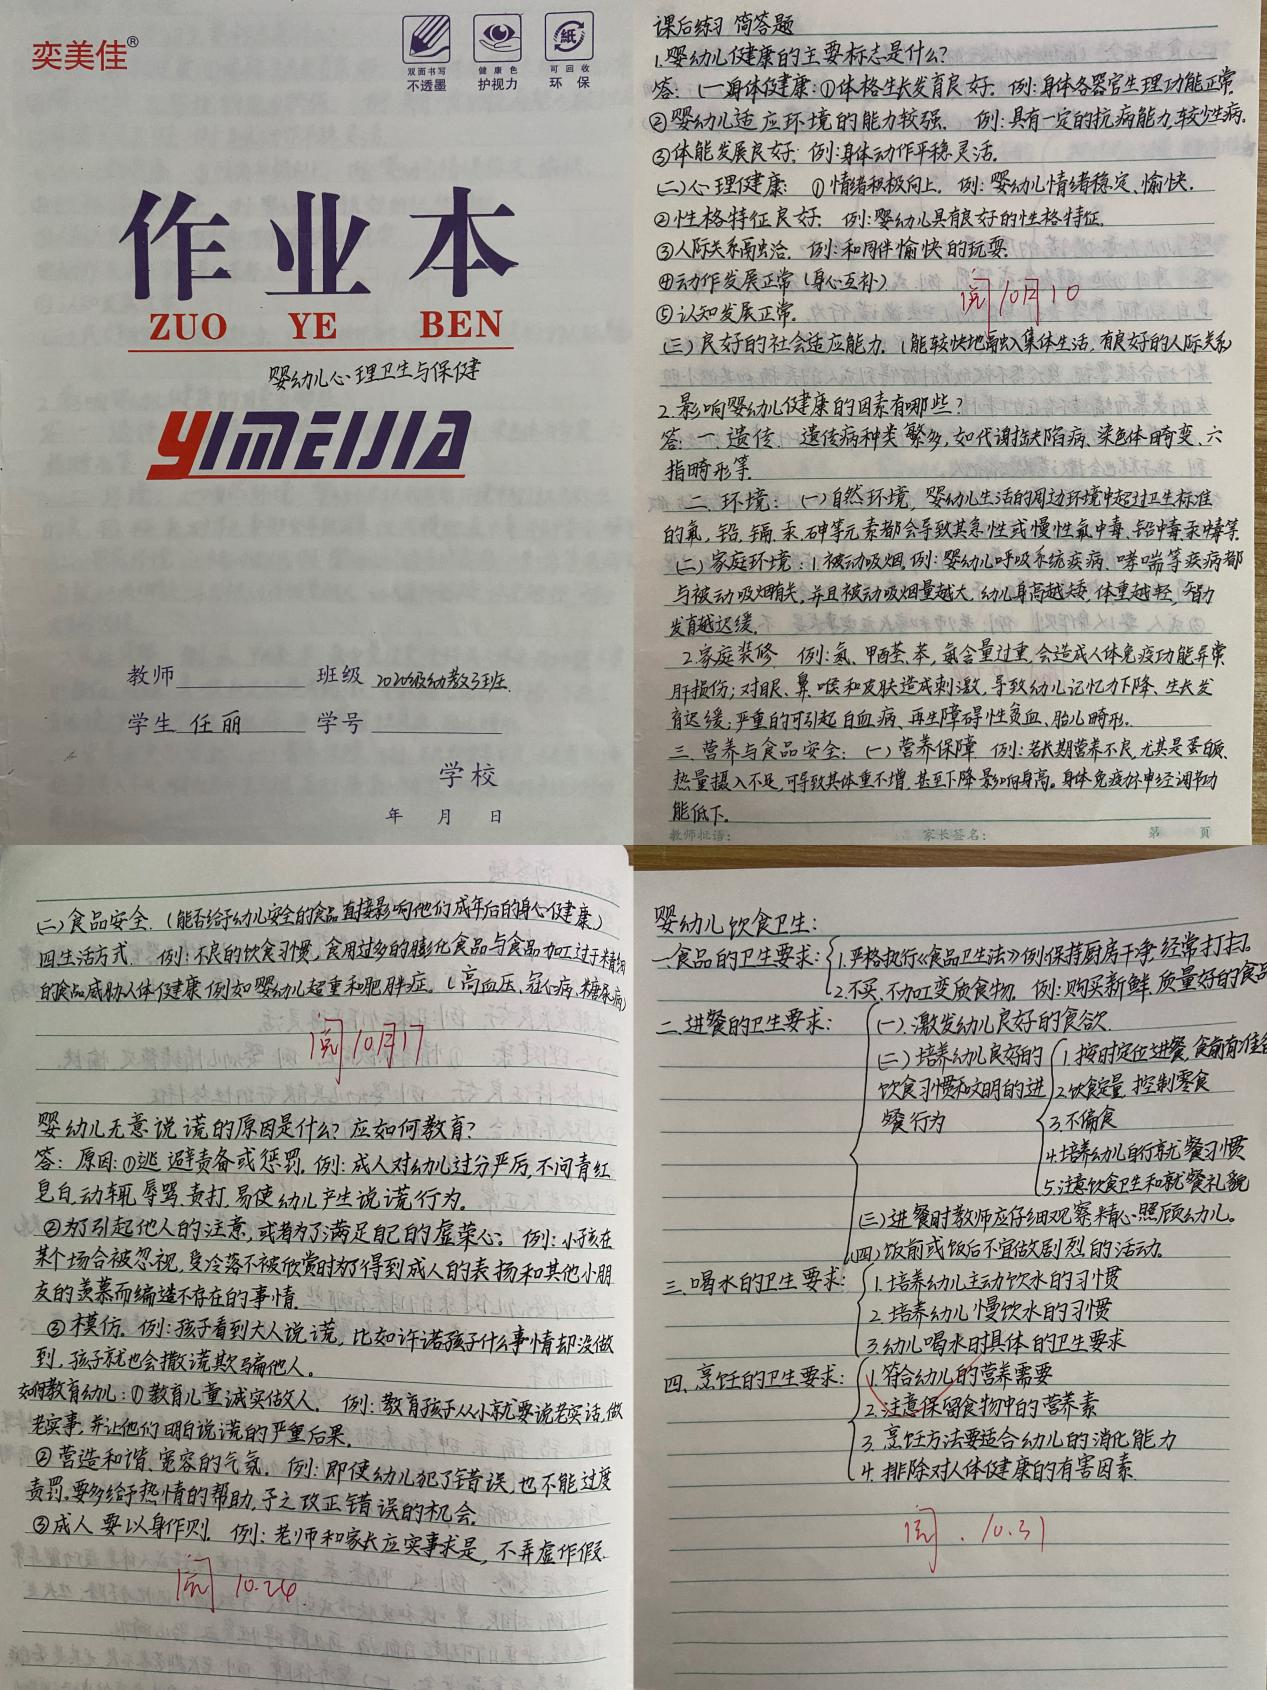 奕美佳®
双面书写
不透墨
健康色
护视力
可回收
环保
紙
作业本
ZUO YE BEN
婴幼儿心理卫生与保健
YIMEIJIA
教师 班级 2020级幼教3班
学生 任丽 学号
学校
年 月 日
课后练习 简答题
1.婴幼儿健康的主要标志是什么?
答:(一)身体健康:①体格生长发育良好. 例:身体各器官生理功能正常.
②婴幼儿适应环境的能力较强. 例:具有一定的抗病能力,较少生病.
③体能发展良好. 例:身体动作平稳灵活.
(二)心理健康: ①情绪积极向上. 例:婴幼儿情绪稳定、愉快.
②性格特征良好. 例:婴幼儿具有良好的性格特征.
③人际关系融洽. 例:和同伴愉快的玩耍.
④动作发展正常(身心互补)
⑤认知发展正常.
阅 10月10
(三)良好的社会适应能力.(能较快地融入集体生活,有良好的人际关系)
2.影响婴幼儿健康的因素有哪些?
答:一.遗传. 遗传病种类繁多,如代谢缺陷病、染色体畸变、六
指畸形等.
二.环境:(一)自然环境,婴幼儿生活的周边环境中超过卫生标准
的氟,铅,镉,汞,砷等元素都会导致其急性或慢性氟中毒、铅中毒汞中毒等.
(二)家庭环境:1.被动吸烟,例:婴幼儿呼吸系统疾病、哮喘等疾病都
与被动吸烟有关,并且被动吸烟量越大,幼儿身高越矮,体重越轻,智力
发育越迟缓.
2.家庭装修 例:氨、甲醛、苯,氡含量过重,会造成人体免疫功能异常,
肝损伤;对眼、鼻、喉和皮肤造成刺激,导致幼儿记忆力下降、生长发
育迟缓;严重的可引起白血病、再生障碍性贫血、胎儿畸形.
三.营养与食品安全:(一)营养保障 例:若长期营养不良,尤其是蛋白质、
热量摄入不足,可导致其体重不增,甚至下降影响身高。身体免疫力神经调节功
能低下.
教师批语: 家长签名: 第 页
(二)食品安全.(能否给予幼儿安全的食品直接影响他们成年后的身心健康)
四.生活方式. 例:不良的饮食习惯,食用过多的膨化食品与食品加工过于精细
的食品威胁人体健康 例如婴幼儿超重和肥胖症.(高血压、冠心病、糖尿病)
阅 10月17
婴幼儿无意说谎的原因是什么?应如何教育?
答:原因:①逃避责备或惩罚.例:成人对幼儿过分严厉,不问青红
皂白,动辄辱骂、责打,易使幼儿产生说谎行为.
②为了引起他人的注意,或者为了满足自己的虚荣心: 例:小孩在
某个场合被忽视,受冷落不被欣赏时为了得到成人的表扬和其他小朋
友的羡慕而编造不存在的事情.
③模仿.例:孩子看到大人说谎,比如许诺孩子什么事情却没做
到,孩子就也会撒谎欺骗他人.
如何教育幼儿:①教育儿童诚实做人. 例:教育孩子从小就要说老实话,做
老实事,并让他们明白说谎的严重后果.
②营造和谐、宽容的气氛. 例:即使幼儿犯了错误,也不能过度
责罚.要多给予热情的帮助,予之改正错误的机会.
③成人要以身作则. 例:老师和家长应实事求是,不弄虚作假.
阅 10.24
婴幼儿饮食卫生:
一.食品的卫生要求:
1.严格执行《食品卫生法》例:保持厨房干净,经常打扫。
2.不买,不加工变质食物. 例:购买新鲜,质量好的食品
二.进餐的卫生要求:
(一).激发幼儿良好的食欲.
(二)培养幼儿良好的
饮食习惯和文明的进
餐行为
1.按时定位进餐,食前有准备
2.饮食定量,控制零食
3.不偏食
4.培养幼儿自行就餐习惯
5.注意饮食卫生和就餐礼貌
(三)进餐时教师应仔细观察精心照顾幼儿。
(四)饭前或饭后不宜做剧烈的活动.
三.喝水的卫生要求:
1.培养幼儿主动饮水的习惯
2.培养幼儿慢饮水的习惯
3.幼儿喝水时具体的卫生要求
四.烹饪的卫生要求:
1.符合幼儿的营养需要
2.注意保留食物中的营养素
3.烹饪方法要适合幼儿的消化能力
4.排除对人体健康的有害因素.
阅.10.31